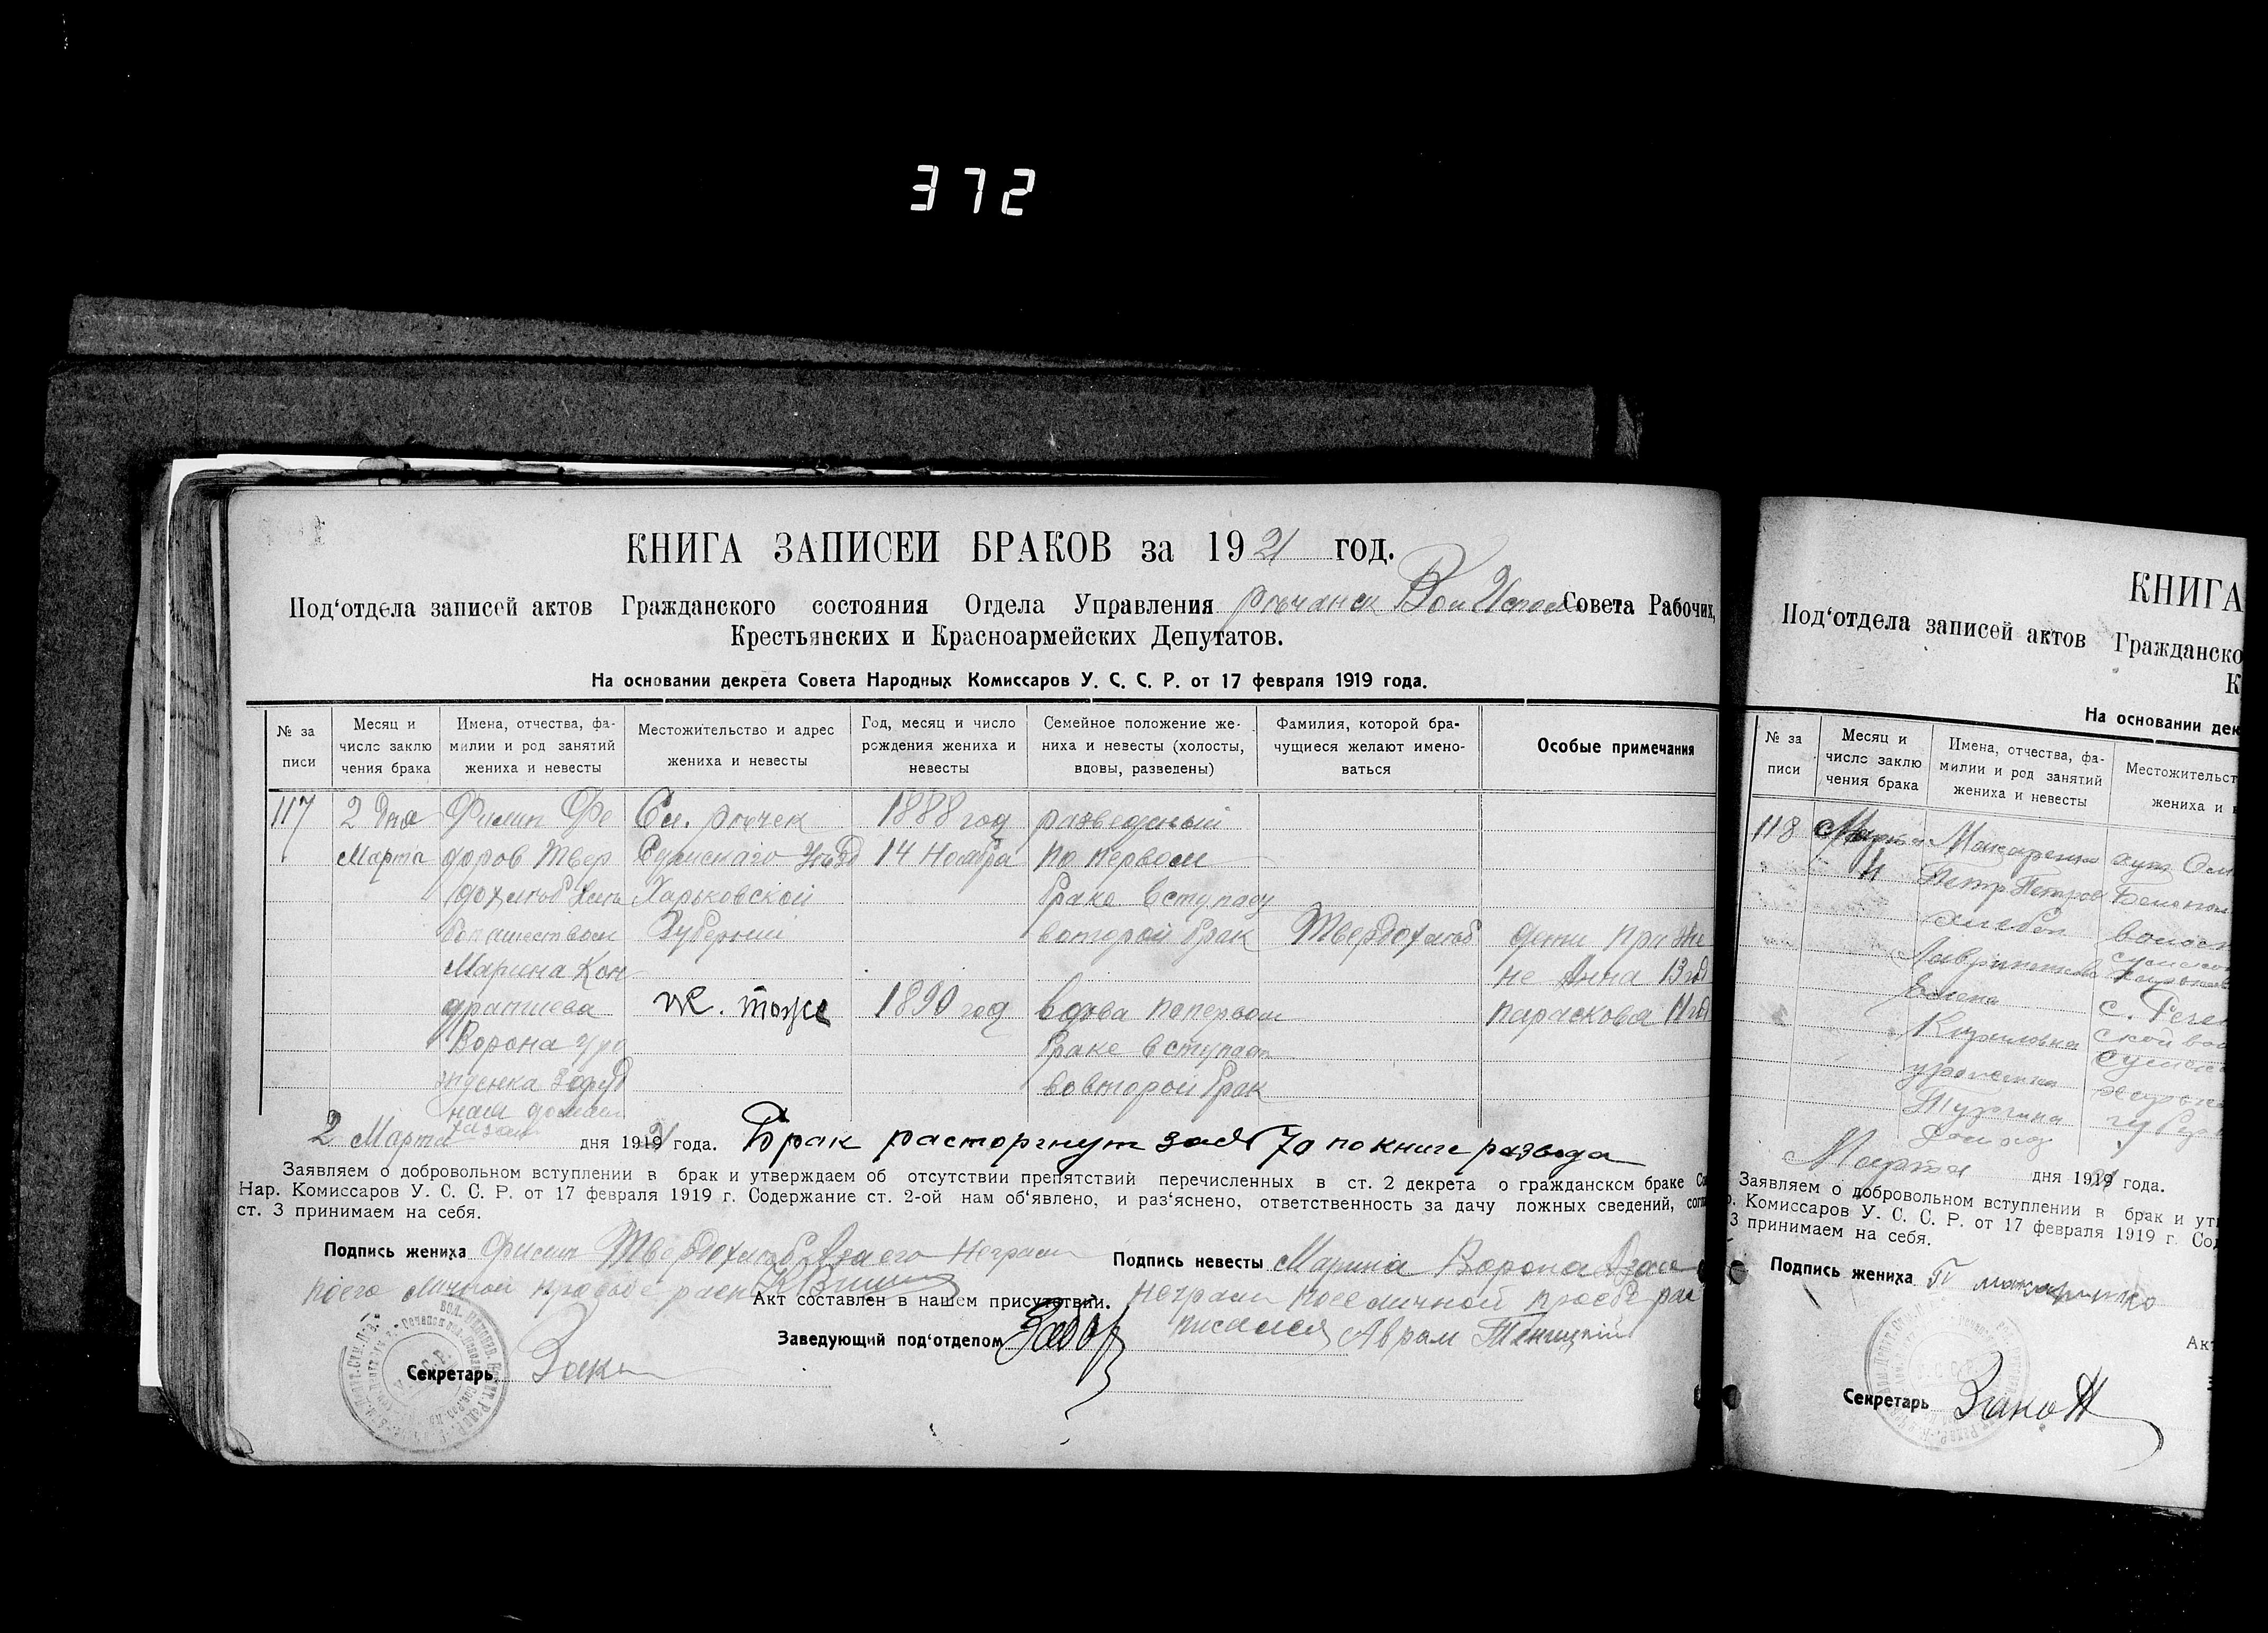 372
КНИГА ЗАПИСЕЙ БРАКОВ за 1921 год.
Под‘отдела записей актов Гражданского состояния Отдела Управления Речанск Вол Исполк Совета Рабочих,
Крестьянских и Красноармейских Депутатов.
На основании декрета Совета Народных Комиссаров У. С. С. Р. от 17 февраля 1919 года.
№ за писи
Месяц и число заклю чения брака
Имена, отчества, фа- милии и род занятий жениха и невесты
Местожительство и адрес жениха и невесты
Год, месяц и число рождения жениха и невесты
Семейное положение же- ниха и невесты (холосты, вдовы, разведены)
Фамилия, которой бра- чущиеся желают имено- ваться
Особые примечания
117
2 дня
Марта
Филип Фе
доров Твер
дохлеб
Марина Кон
дратиева
Ворона уро
жденка
ная
Сл. Речек
Сумскаго Уезд
Харьковской
Губернии
м. тоже
1888 год
14 Ноября
1890 год
разведеный
по первом
браке вступает
воторой брак
вдова попервом
браке вступает
вовторой брак
Твердохлеб
дети при же
не Анна 13 год
Параскова 11 год
2 Марта дня 1921 года. Брак расторгнут за № 70 по книге развода
Заявляем о добровольном вступлении в брак и утверждаем об отсутствии препятствий перечисленных в ст. 2 декрета о гражданском браке Со
Нар. Комиссаров У. С. С. Р. от 17 февраля 1919 г. Содержание ст. 2-ой нам об‘явлено, и раз‘яснено, ответственность за дачу ложных сведений, согла
ст. 3 принимаем на себя.
Подпись жениха Филип Твердохлеб Азаего Неграм
поего личной прозьбе расп
Подпись невесты Марина Ворона Азаее
неграм поееличной прозбе рас
писался Аврам
Акт составлен в нашем присутствии.
Заведующий под‘отделом
Секретарь
КНИГА
Под‘отдела записей актов Гражданско
К
На основании дек
№ за писи
Месяц и число заклю чения брака
Имена, отчества, фа- милии и род занятий жениха и невесты
Местожительст
жениха и н
118
Марта
4
Макаренко
Петр Петров
Елена
Кириловна
хут
с. Рече
ской вол
губер
Марта дня 1921 года.
Заявляем о добровольном вступлении в брак и утв
р. Комиссаров У. С. С. Р. от 17 февраля 1919 г. Сод
3 принимаем на себя.
Подпись жениха П макаренко
Акт
Секретарь